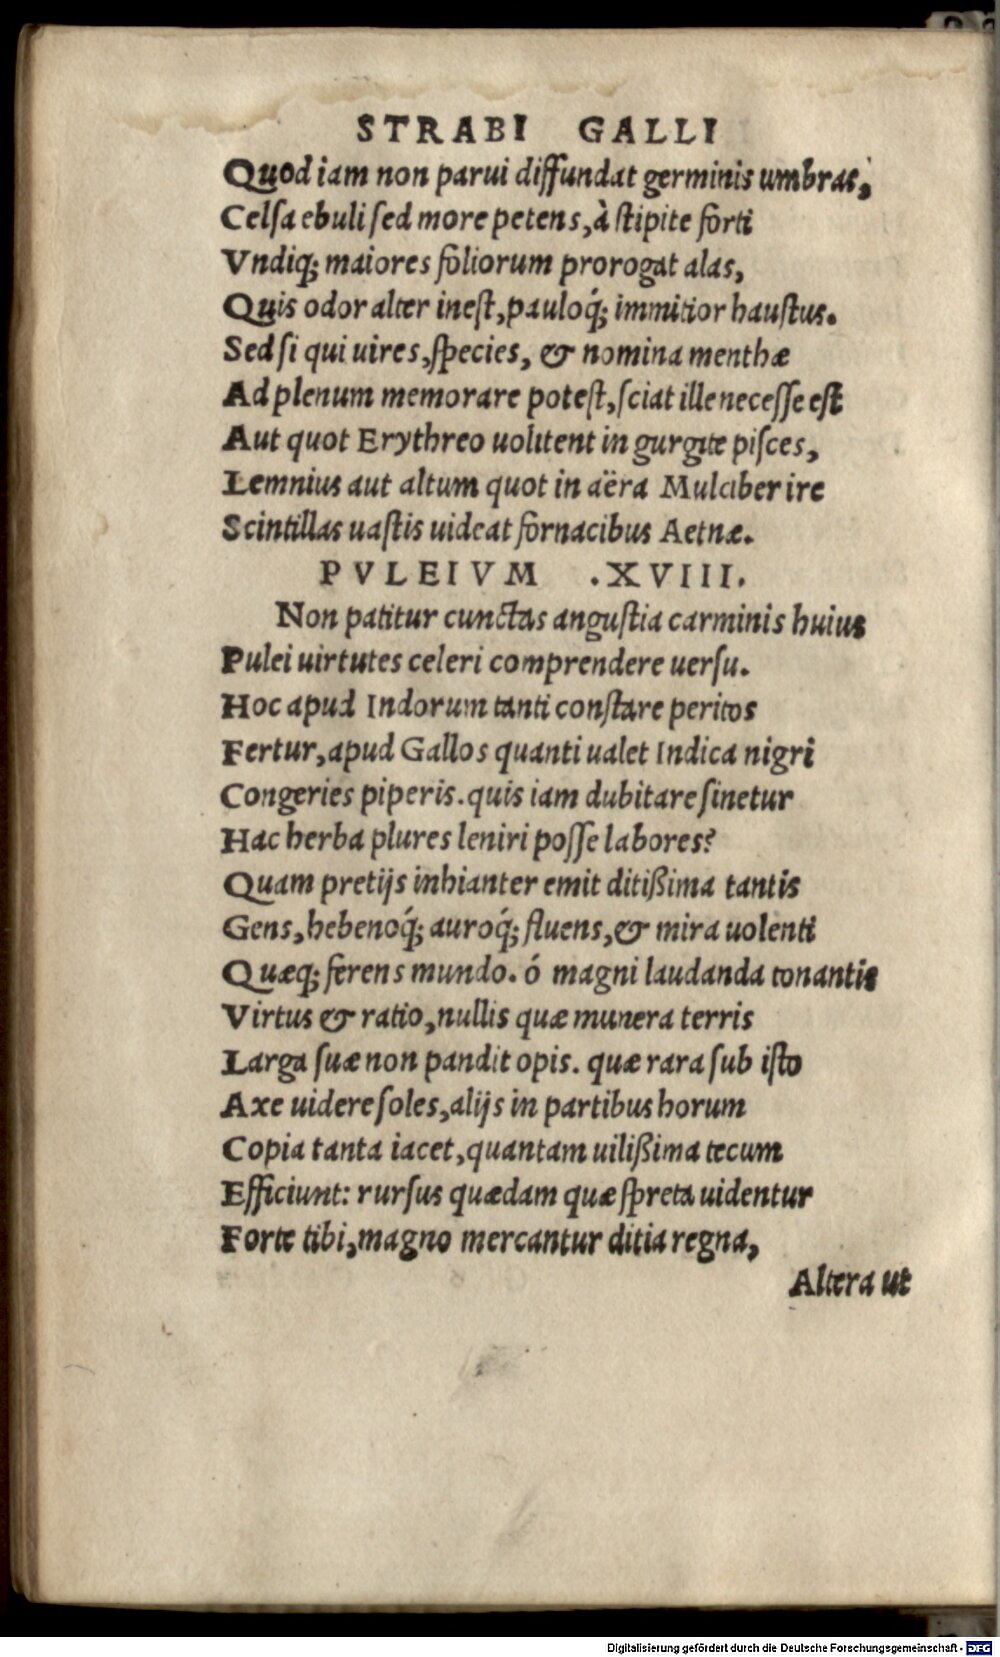 STRABI GALLI
Quod iam non parui diffundat germinis umbras,
Celſa ebuli ſed more petens, à ſtipite forti
Vndiq; maiores foliorum prorogat alas,
Quis odor alter ineſt, pauloq́; immitior hauſtus.
Sed ſi qui uires, ſpecies, & nomina menthæ
Ad plenum memorare poteſt, ſciat ille neceſſe eſt
Aut quot Erythreo uolitent in gurgite piſces,
Lemnius aut altum quot in aëra Mulciber ire
Scintillas uaſtis uideat fornacibus Aetnæ.
PVLEIVM .XVIII.
Non patitur cunctas anguſtia carminis huius
Pulei uirtutes celeri comprendere uerſu.
Hoc apud Indorum tanti conſtare peritos
Fertur, apud Gallos quanti ualet Indica nigri
Congeries piperis. quis iam dubitare ſinetur
Hac herba plures leniri poſſe labores?
Quam pretijs inhianter emit ditißima tantis
Gens, hebenoq́; auroq́; fluens, & mira uolenti
Quæq; ferens mundo. ó magni laudanda tonantis
Virtus & ratio, nullis quæ munera terris
Larga ſuæ non pandit opis. quæ rara ſub iſto
Axe uidere ſoles, alijs in partibus horum
Copia tanta iacet, quantam uilißima tecum
Efficiunt: rurſus quædam quæ ſpreta uidentur
Forte tibi, magno mercantur ditia regna,
Altera ut
Digitalisierung gefördert durch die Deutsche Forschungsgemeinschaft - DFG